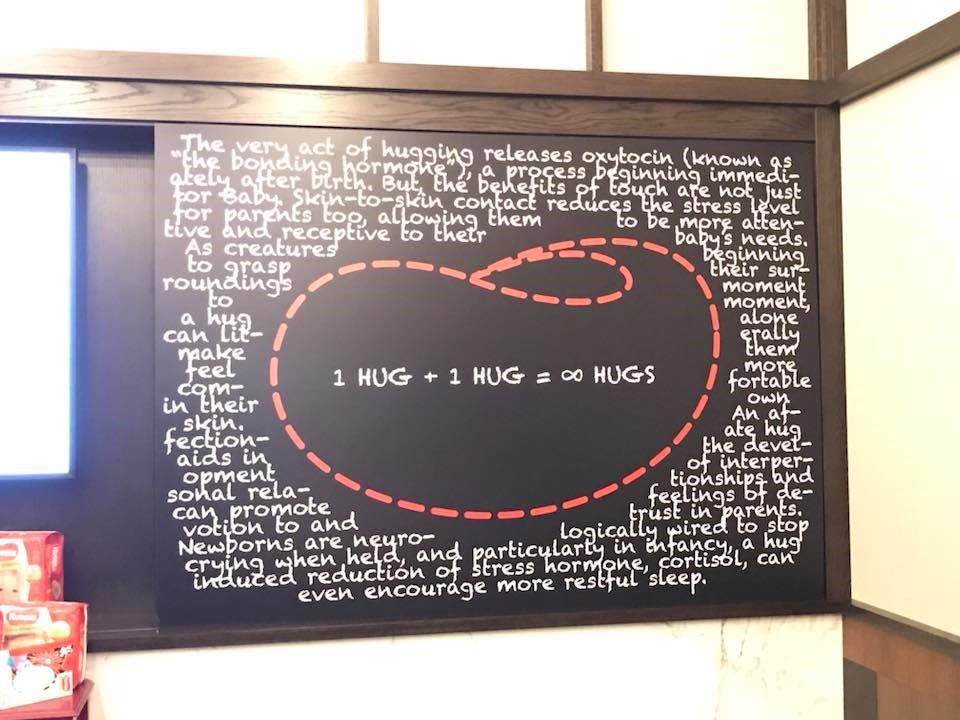 The very act of hugging releases oxytocin (known as
“the bonding hormone”), a process beginning immedi-
ately after birth. But, the benefits of touch are not just
for Baby. Skin-to-skin contact reduces the stress level
for parents too, allowing them to be more atten-
tive and receptive to their baby's needs.
As creatures beginning
to grasp their sur-
roundings moment
to moment,
a hug alone
can lit- erally
make them
feel more
com- fortable
in their own
skin. An af-
fection- ate hug
aids in the devel-
opment of interper-
sonal rela- tionships and
can promote feelings of de-
votion to and trust in parents.
Newborns are neuro- logically wired to stop
crying when held, and particularly in infancy, a hug
induced reduction of stress hormone, cortisol, can
even encourage more restful sleep.
1 HUG + 1 HUG = ∞ HUGS
HUGGIES